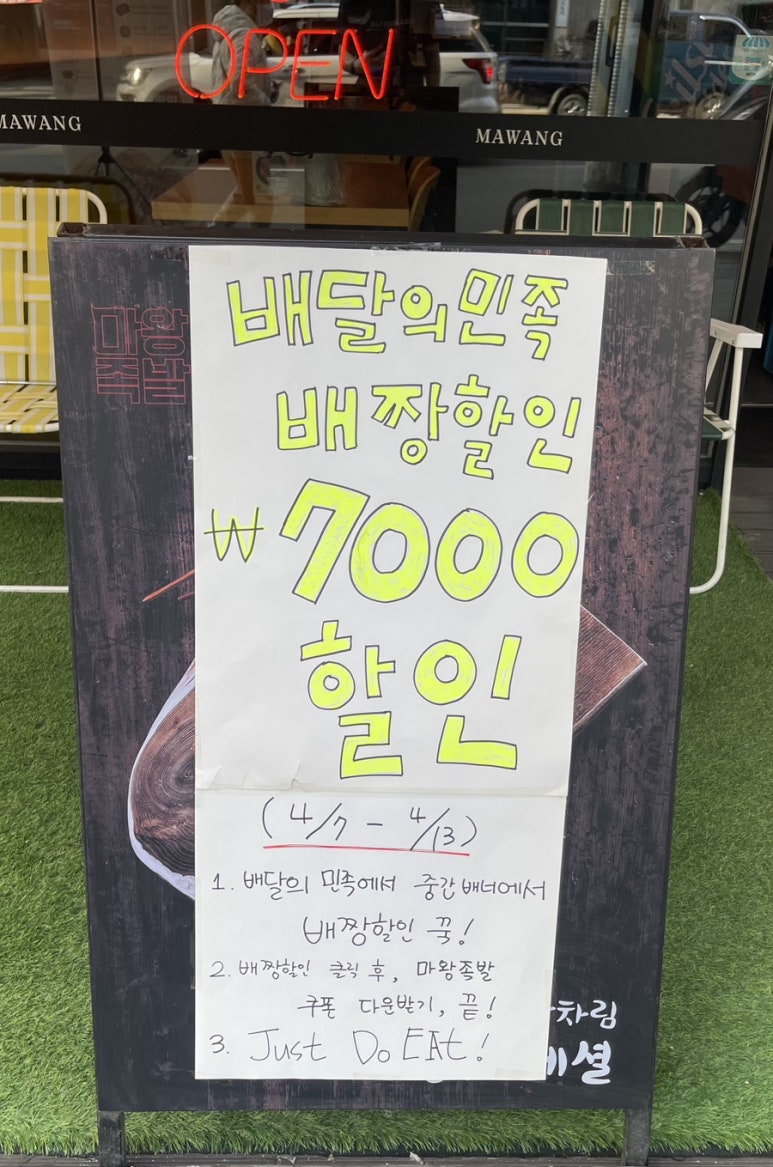 OPEN
MAWANG
MAWANG
마왕
족발
배달의민족
배짱할인
₩7000
할인
(4/7 - 4/13)
1. 배달의 민족에서 중간배너에서
배짱할인 꾹!
2. 배짱할인 클릭 후, 마왕족발
쿠폰 다운받기, 끝!
3. Just Do EAt!
차림
셜